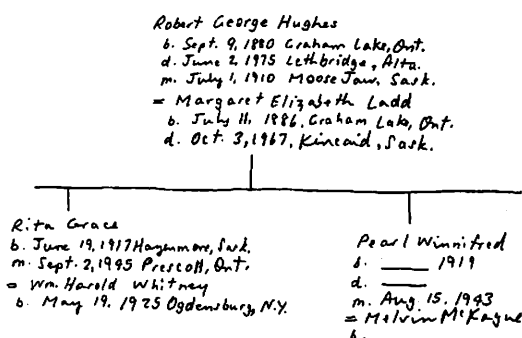 Robert George Hughes
b. Sept. 9, 1880 Graham Lake, Ont.
d. June 2, 1975 Lethbridge, Alta.
m. July 1, 1910 Moose Jaw, Sask.
= Margaret Elizabeth Ladd
b. July 11, 1886, Graham Lake, Ont.
d. Oct. 3, 1967, Kincaid, Sask.
Rita Grace
b. June 19, 1917 Hazenmore, Sask.
m. Sept. 2, 1945 Prescott, Ont.
= Wm. Harold Whitney
b. May 19, 1925 Ogdensburg, N.Y.
Pearl Winnifred
b. ____ 1919
d. ____
m. Aug. 15, 1943
= Melvin McKague
b.